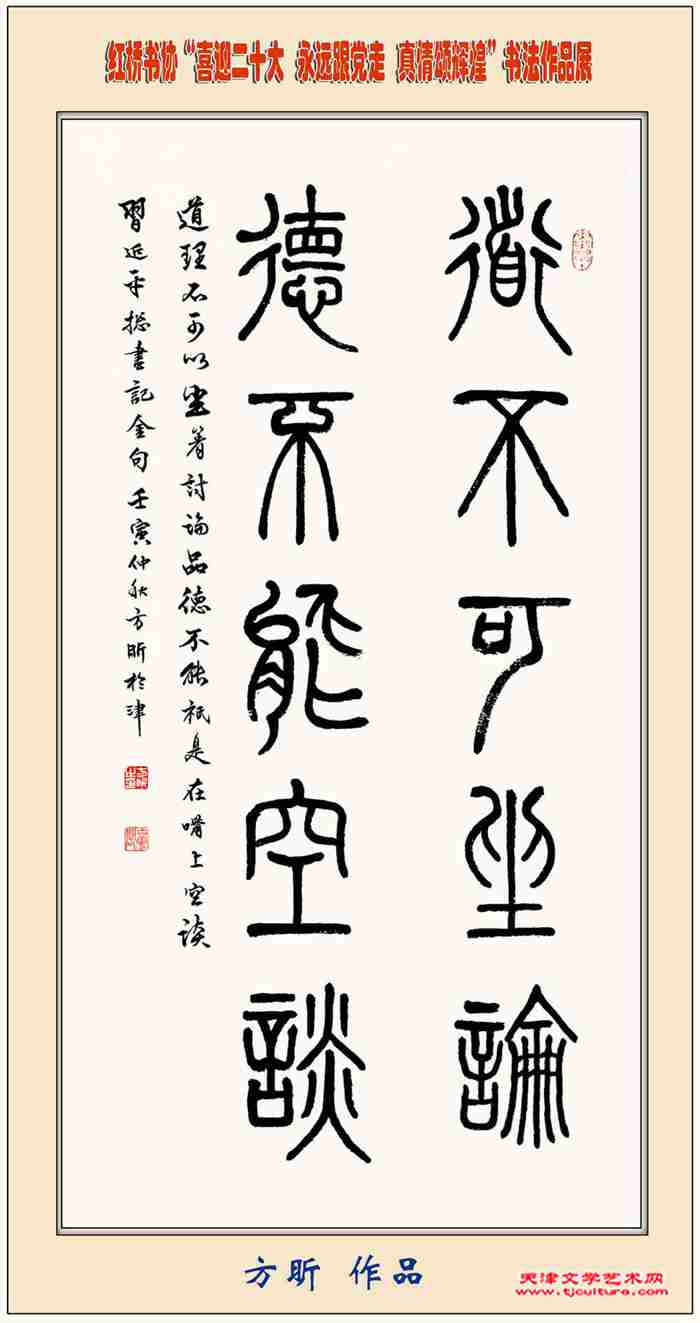 红桥书协“喜迎二十大 永远跟党走 真情颂辉煌”书法作品展
道不可坐論
德不能空談
道理不可以坐着討論品德不能衹是在嘴上空谈
習近平總書記金句 壬寅仲秋方昕於津
方昕 作品
天津文学艺术网
www.tjculture.com